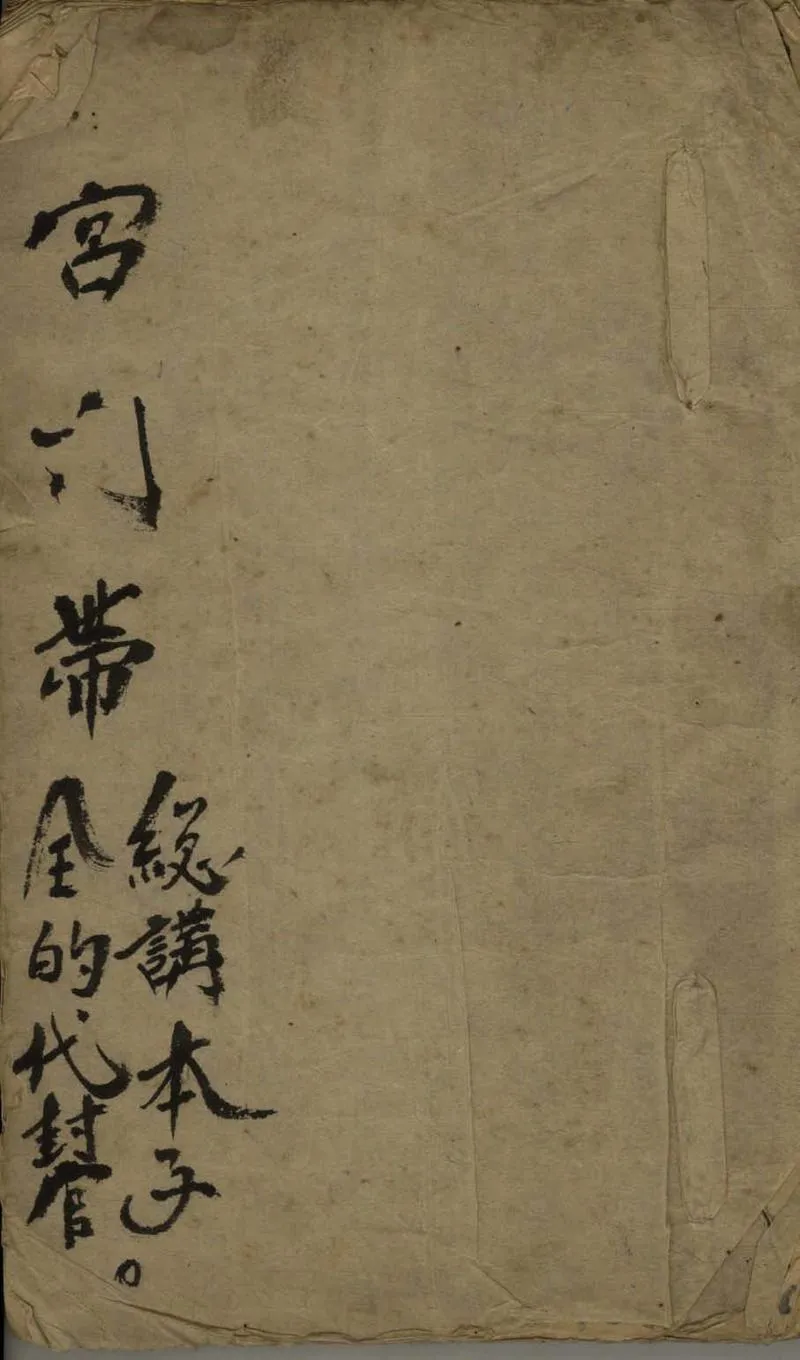 宮門帶
總講本子。
全的代封官